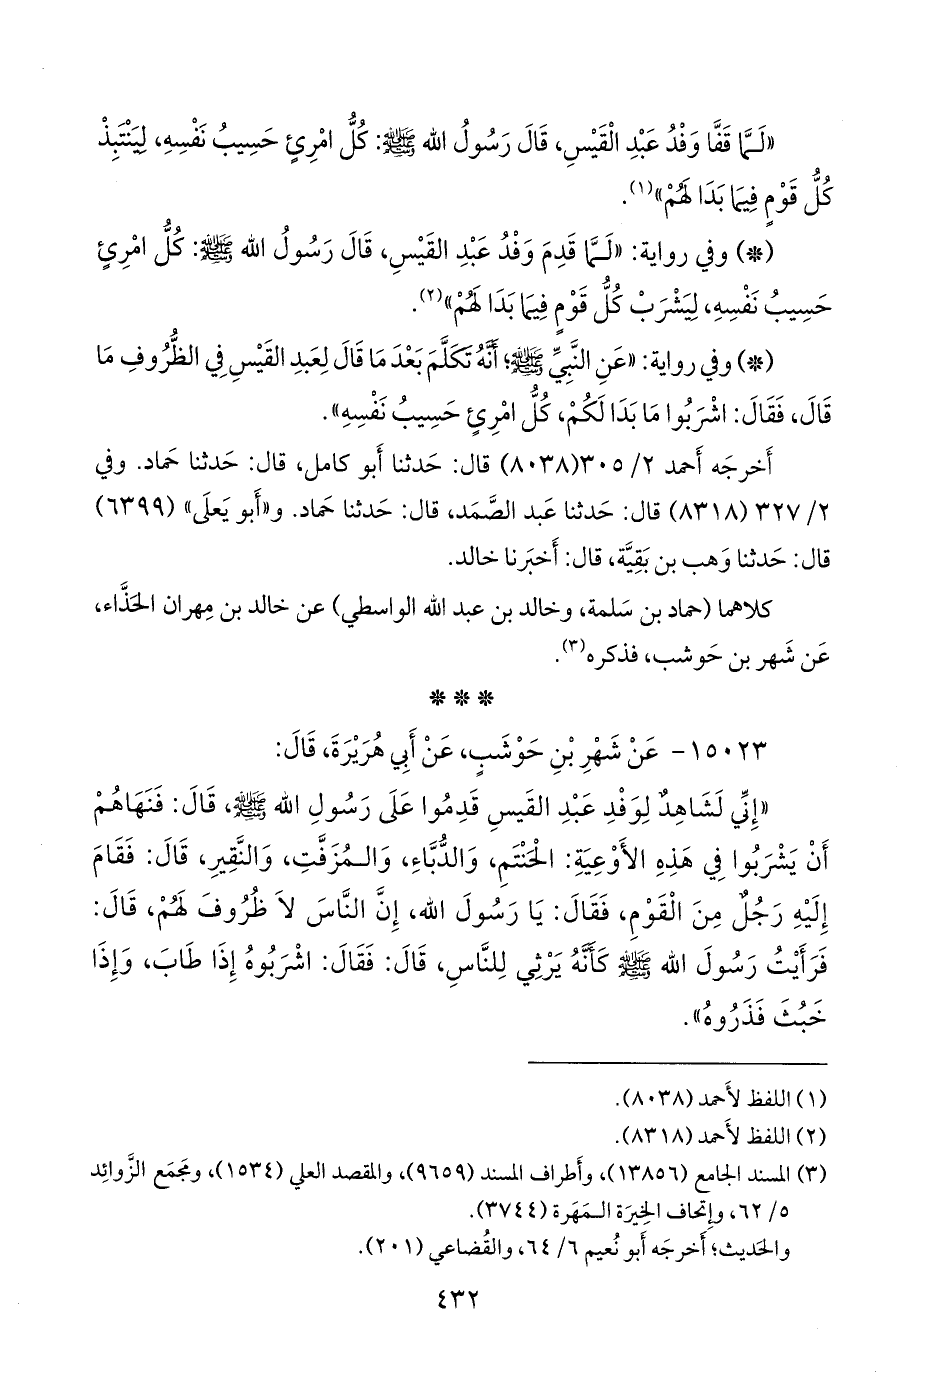 «لَـمَّا قَفَّا وَفْدُ عَبْدِ الْقَيْسِ، قَالَ رَسُولُ الله ﷺ: كُلُّ امْرِئٍ حَسِيبُ نَفْسِهِ، لِيَنْتَبِذْ
كُلُّ قَوْمٍ فِيمَا بَدَا لَهُمْ»(١).
(*) وفي رواية: «لَـمَّا قَدِمَ وَفْدُ عَبْدِ القَيْسِ، قَالَ رَسُولُ الله ﷺ: كُلُّ امْرِئٍ
حَسِيبُ نَفْسِهِ، لِيَشْرَبْ كُلُّ قَوْمٍ فِيمَا بَدَا لَهُمْ»(٢).
(*) وفي رواية: «عَنِ النَّبِيِّ ﷺ؛ أَنَّهُ تَكَلَّمَ بَعْدَ مَا قَالَ لِعَبدِ القَيْسِ فِي الظُّرُوفِ مَا
قَالَ، فَقَالَ: اشْرَبُوا مَا بَدَا لَكُمْ، كُلُّ امْرِئٍ حَسِيبُ نَفْسِهِ».
أَخرجَه أَحمد ٢/ ٣٠٥(٨٠٣٨) قال: حَدثنا أَبو كامل، قال: حَدثنا حَماد. وفي
٢/ ٣٢٧ (٨٣١٨) قال: حَدثنا عَبد الصَّمَد، قال: حَدثنا حَماد. و«أَبو يَعلَى» (٦٣٩٩)
قال: حَدثنا وَهب بن بَقِيَّة، قال: أَخبَرنا خالد.
كلاهما (حماد بن سَلمة، وخالد بن عبد الله الواسطي) عن خالد بن مِهران الحَذَّاء،
عَن شَهر بن حَوشب، فذكره(٣).
* * *
١٥٠٢٣- عَنْ شَهْرِ بْنِ حَوْشَبٍ، عَنْ أَبِي هُرَيْرَةَ، قَالَ:
«إِنِّي لَشَاهِدٌ لِوَفْدِ عَبْدِ القَيسِ قَدِمُوا عَلَى رَسُولِ الله ﷺ، قَالَ: فَنَهَاهُمْ
أَنْ يَشْرَبُوا فِي هَذِهِ الأَوْعِيَةِ: الْحَنْتَمِ، وَالدُّبَّاءِ، وَالـمُزَفَّتِ، وَالنَّقِيرِ، قَالَ: فَقَامَ
إِلَيْهِ رَجُلٌ مِنَ الْقَوْمِ، فَقَالَ: يَا رَسُولَ الله، إِنَّ النَّاسَ لاَ ظُرُوفَ لَهُمْ، قَالَ:
فَرَأَيْتُ رَسُولَ الله ﷺ كَأَنَّهُ يَرْثِي لِلنَّاسِ، قَالَ: فَقَالَ: اشْرَبُوهُ إِذَا طَابَ، وَإِذَا
خَبُثَ فَذَرُوهُ».
(١) اللفظ لأَحمد (٨٠٣٨).
(٢) اللفظ لأَحمد (٨٣١٨).
(٣) المسند الجامع (١٣٨٥٦)، وأَطراف المسند (٩٦٥٩)، والمقصد العلي (١٥٣٤)، ومَجمَع الزَّوائِد
٥/ ٦٢، وإِتحاف الخِيرَة الـمَهَرة (٣٧٤٤).
والحَديث؛ أَخرجَه أَبو نُعيم ٦/ ٦٤، والقُضاعي (٢٠١).
٤٣٢